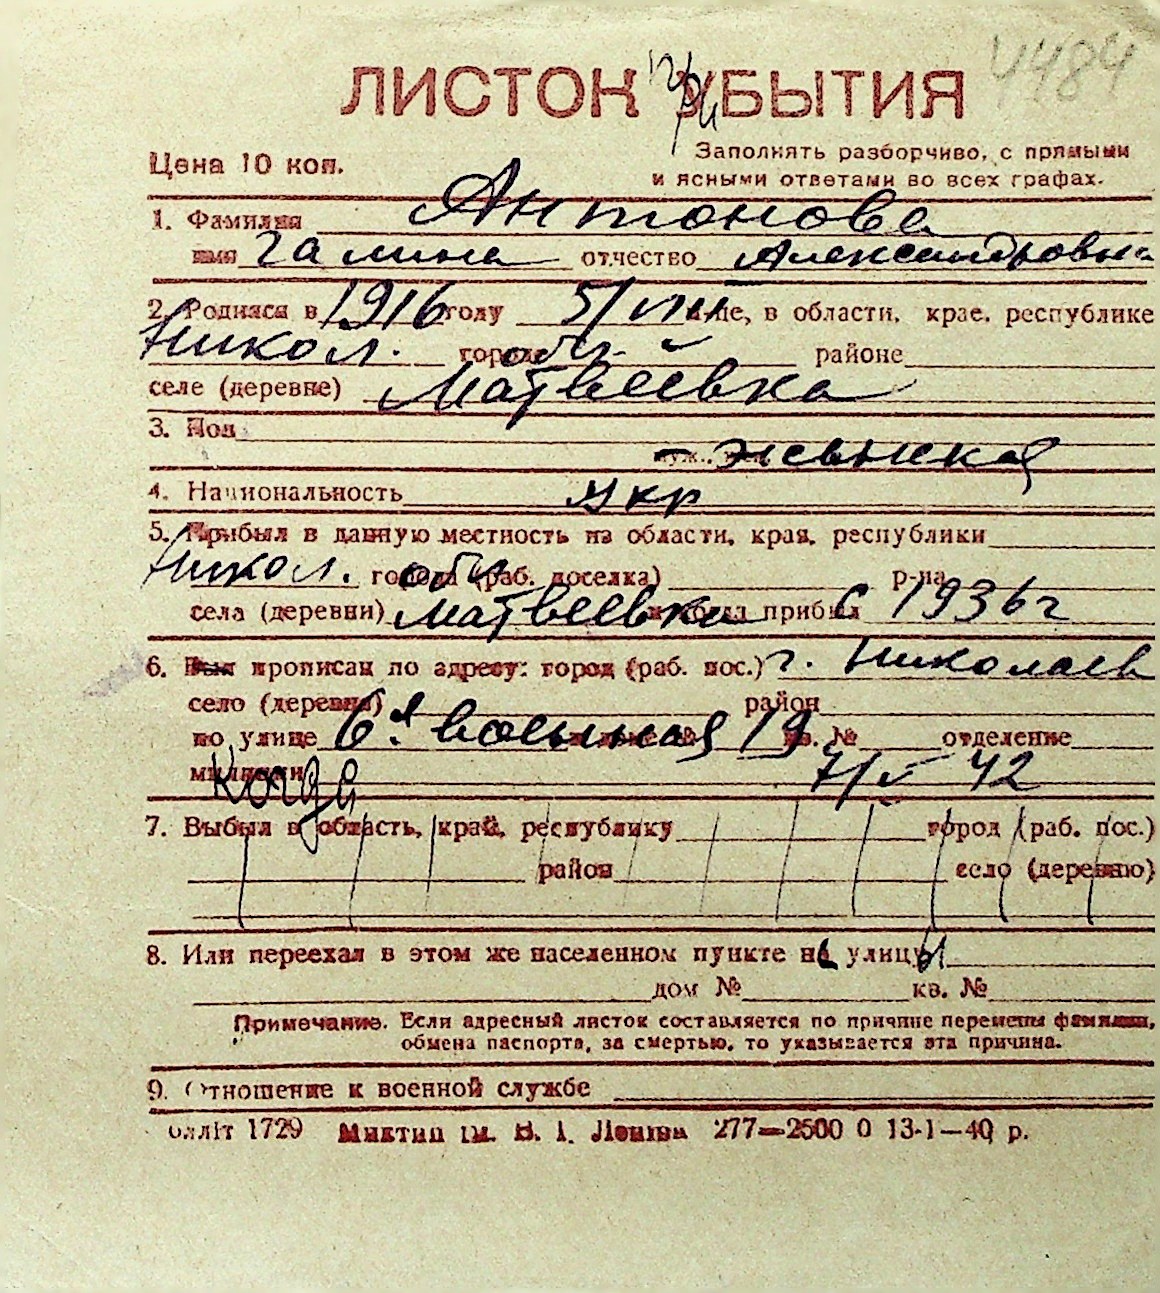 4484
ЛИСТОК УБЫТИЯ
при
Цена 10 коп.
Заполнять разборчиво, с прямыми
и ясными ответами во всех графах.
1. Фамилия Антонова
имя Галина отчество Александровна
2. Родился в 1916 году 5/VIII м-це, в области, крае, республике
Никол. обл. городе районе
селе (деревне) Матвеевка
3. Пол
муж., женская
4. Национальность укр
5. Прибыл в данную местность из области, края, республики
Никол. обл города (раб. поселка) р-на
села (деревни) Матвеевка прибыл с 1936 г
6. Был прописан по адресу: город (раб. пос.) г. Николаев
село (деревня) район
по улице 6я военная 19 кв. № отделение
милиции Когда 7/V 42
7. Выбыл в область, край, республику город (раб. пос.)
район село (деревню)
8. Или переехал в этом же населенном пункте на улицы
дом № кв. №
Примечание. Если адресный листок составляется по причине перемены фамилии,
обмена паспорта, за смертью, то указывается эта причина.
9. Отношение к военной службе
олліт 1729 Миктип ім. В. І. Леніна 277—2500 0 13-1—40 р.